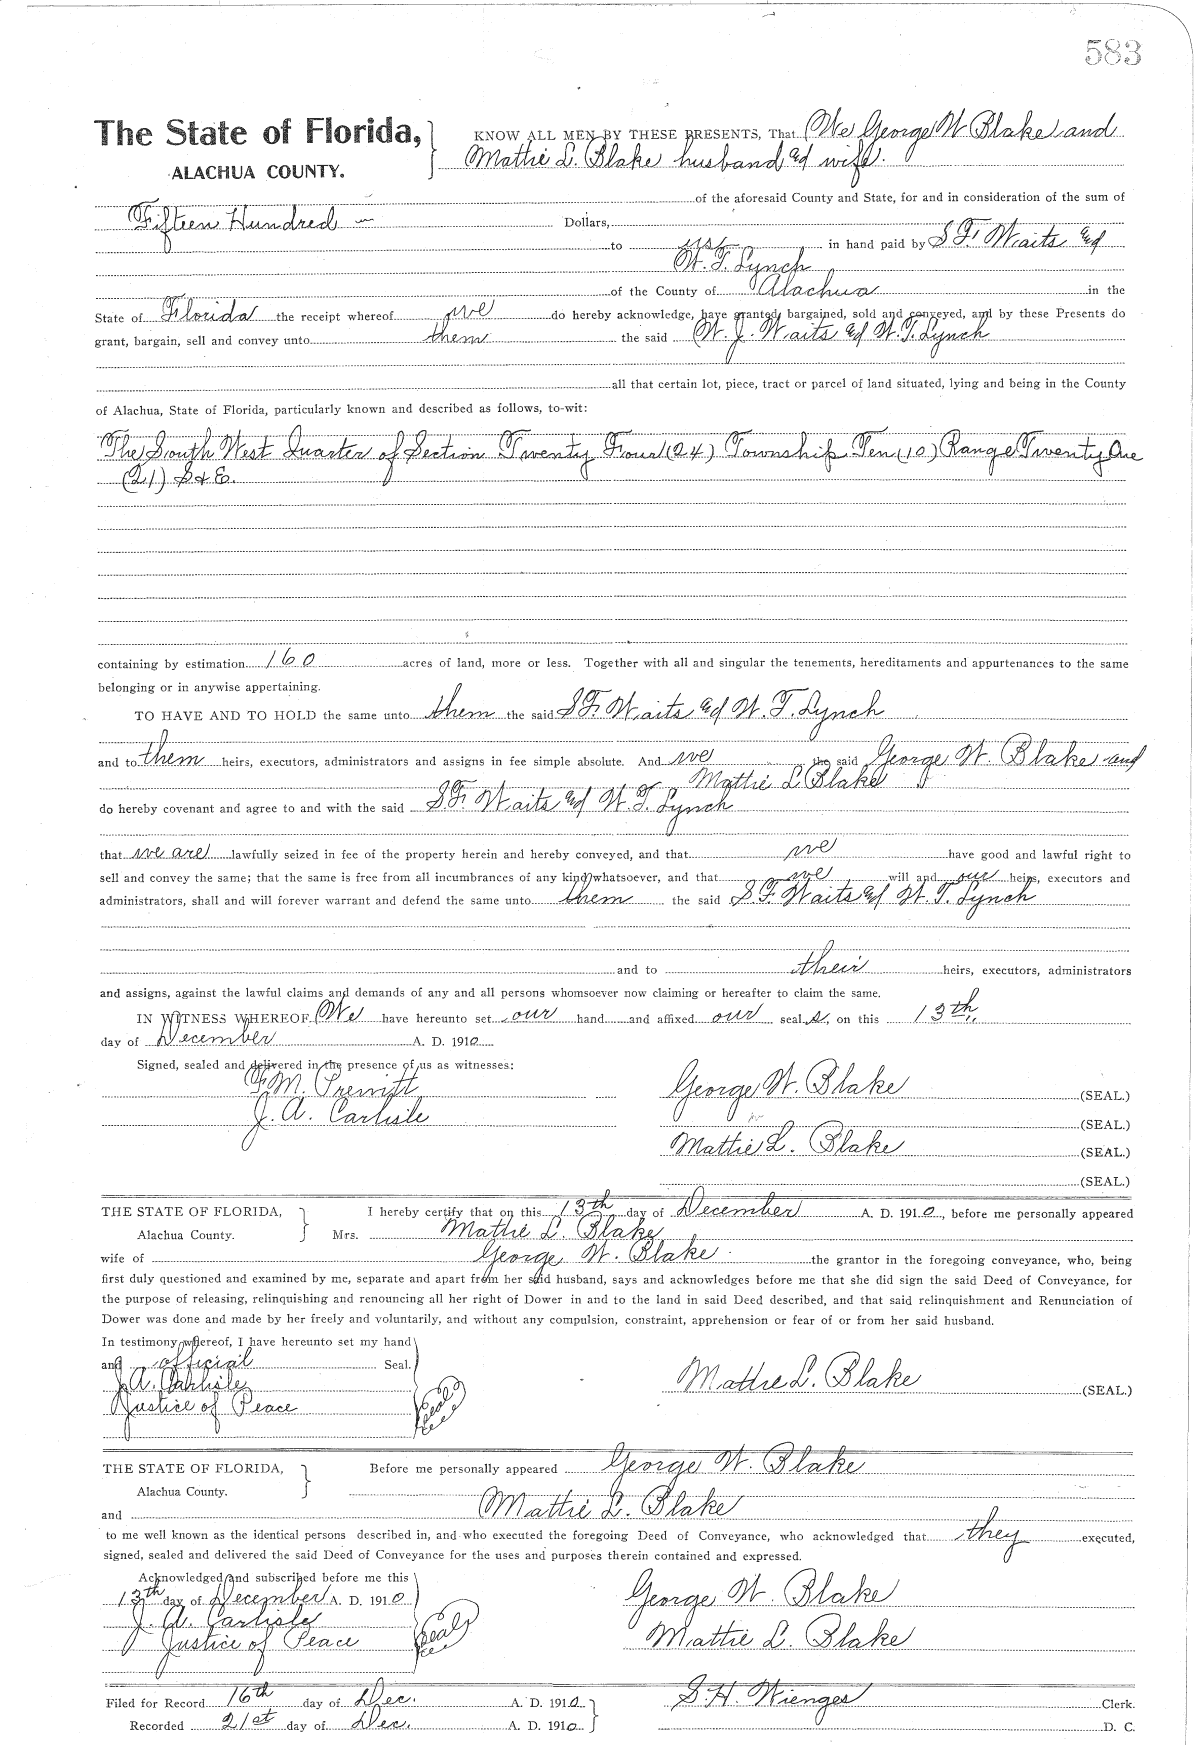 583
The State of Florida,
ALACHUA COUNTY.
KNOW ALL MEN BY THESE PRESENTS, That We George W Blake and
Mathie L. Blake husband ad wife.
of the aforesaid County and State, for and in consideration of the sum of
Fifteen Hundred — Dollars,
to us in hand paid by S F. Waits ad
W. T. Lynch
of the County of Alachua in the
State of Florida the receipt whereof we do hereby acknowledge, have granted, bargained, sold and conveyed, and by these Presents do
grant, bargain, sell and convey unto them the said W. J. Waits ad W. T. Lynch
all that certain lot, piece, tract or parcel of land situated, lying and being in the County
of Alachua, State of Florida, particularly known and described as follows, to-wit:
The South West Quarter of Section Twenty Four (24) Township Ten (10) Range Twenty One
(21) S & E.
containing by estimation 160 acres of land, more or less. Together with all and singular the tenements, hereditaments and appurtenances to the same
belonging or in anywise appertaining.
TO HAVE AND TO HOLD the same unto them the said S F. Waits ad W. T. Lynch
and to them heirs, executors, administrators and assigns in fee simple absolute. And we the said George W. Blake and
Mathie L Blake
do hereby covenant and agree to and with the said S. F. Waits ad W. T. Lynch
that we are lawfully seized in fee of the property herein and hereby conveyed, and that we have good and lawful right to
sell and convey the same; that the same is free from all incumbrances of any kind whatsoever, and that we will and our heirs, executors and
administrators, shall and will forever warrant and defend the same unto them the said S. F. Waits ad W. T. Lynch
and to their heirs, executors, administrators
and assigns, against the lawful claims and demands of any and all persons whomsoever now claiming or hereafter to claim the same.
IN WITNESS WHEREOF, We have hereunto set our hand and affixed our seal s, on this 13th
day of December A. D. 1910
Signed, sealed and delivered in the presence of us as witnesses:
F. M. Prewitt
J. A. Carlisle
George W. Blake (SEAL.)
(SEAL.)
Mattie L. Blake (SEAL.)
(SEAL.)
THE STATE OF FLORIDA,
Alachua County.
I hereby certify that on this 13th day of December A. D. 1910, before me personally appeared
Mrs. Mathie L. Blake
wife of George W. Blake the grantor in the foregoing conveyance, who, being
first duly questioned and examined by me, separate and apart from her said husband, says and acknowledges before me that she did sign the said Deed of Conveyance, for
the purpose of releasing, relinquishing and renouncing all her right of Dower in and to the land in said Deed described, and that said relinquishment and Renunciation of
Dower was done and made by her freely and voluntarily, and without any compulsion, constraint, apprehension or fear of or from her said husband.
In testimony whereof, I have hereunto set my hand
and official Seal.
J. A. Carlisle
Justice of Peace
Seal
Mathie L. Blake (SEAL.)
THE STATE OF FLORIDA,
Alachua County.
Before me personally appeared George W. Blake
and Mattie L. Blake
to me well known as the identical persons described in, and who executed the foregoing Deed of Conveyance, who acknowledged that they executed,
signed, sealed and delivered the said Deed of Conveyance for the uses and purposes therein contained and expressed.
Acknowledged and subscribed before me this
13th day of December A. D. 1910
J. A. Carlisle
Justice of Peace
Seal
George W. Blake
Mattie L. Blake
Filed for Record 16th day of Dec. A. D. 1910
Recorded 21st day of Dec. A. D. 1910
S. H. Wienges Clerk.
D. C.